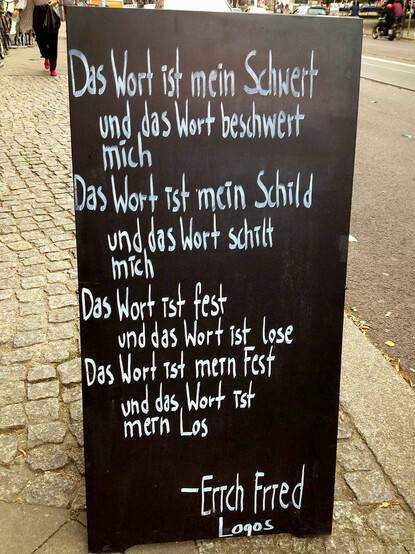 Das Wort ist mein Schwert
und das Wort beschwert
mich
Das Wort ist mein Schild
und das Wort schilt
mich
Das Wort ist fest
und das Wort ist lose
Das Wort ist mein Fest
und das Wort ist
mein Los
-Erich Fried
Logos